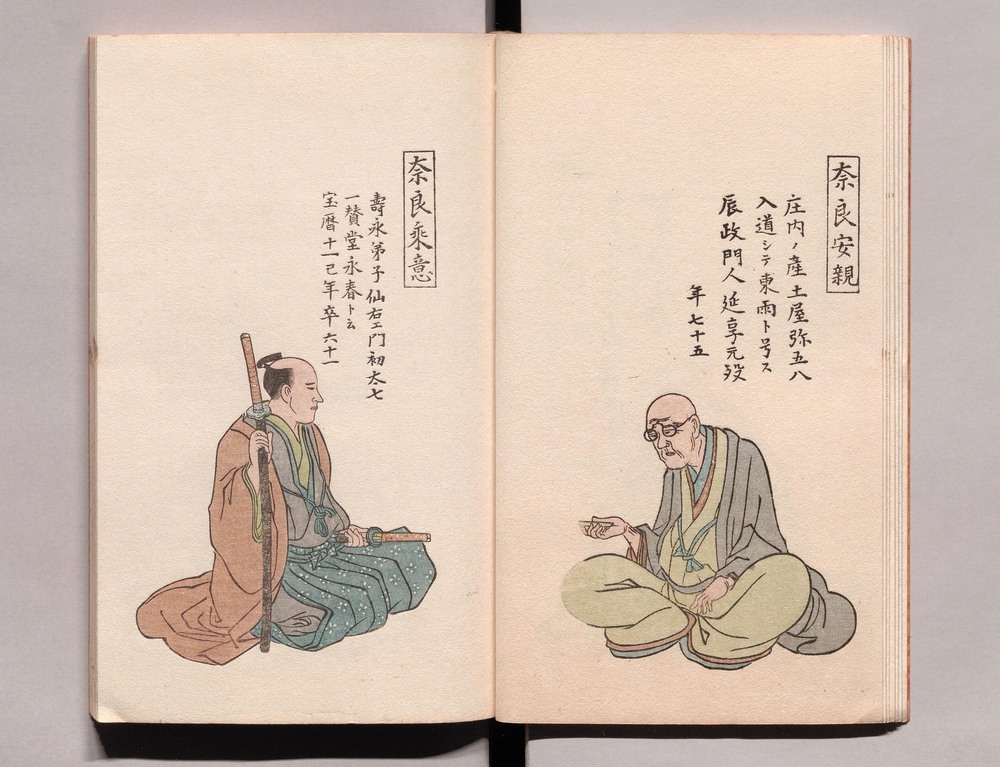 奈良安親
庄内ノ産土屋弥五八
入道シテ東雨ト号ス
辰政門人延享元歿
年七十五
奈良乗意
壽永弟子仙右エ門初太七
一賛堂永春ト云
宝暦十一己年卒六十一